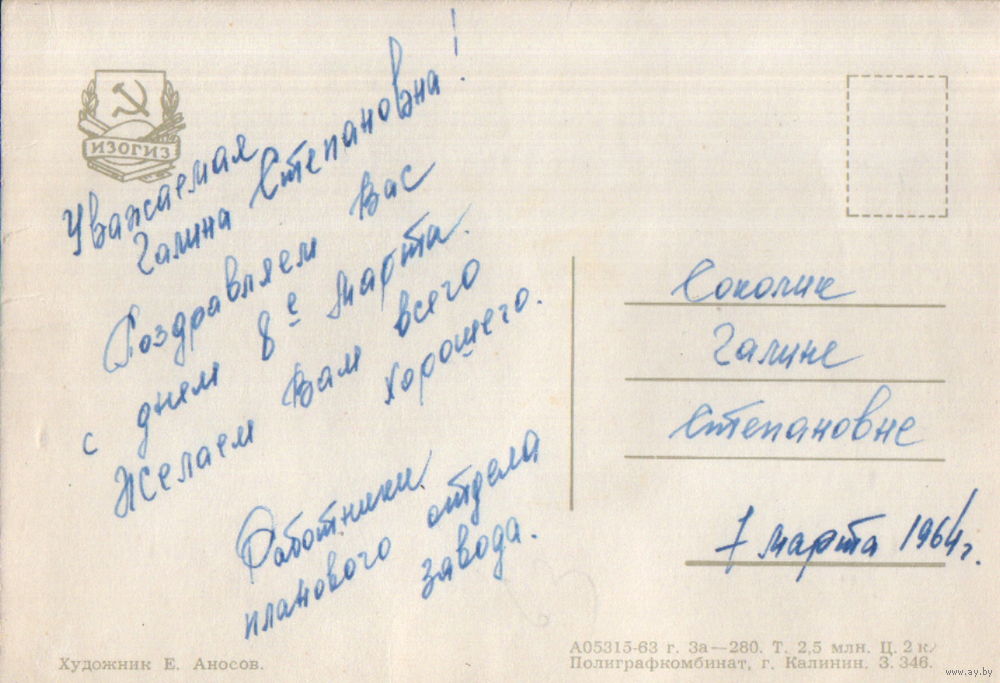 ИЗОГИЗ
Уважаемая
Галина Степановна!
Поздравляем Вас
с днем 8е марта.
Желаем Вам всего
хорошего.
Работники
планового отдела
завода.
Соколик
Галине
Степановне
7 марта 1964 г.
Художник Е. Аносов.
А05315-63 г. За—280. Т. 2,5 млн. Ц. 2 к.
Полиграфкомбинат, г. Калинин. З. 346.
www.ay.by